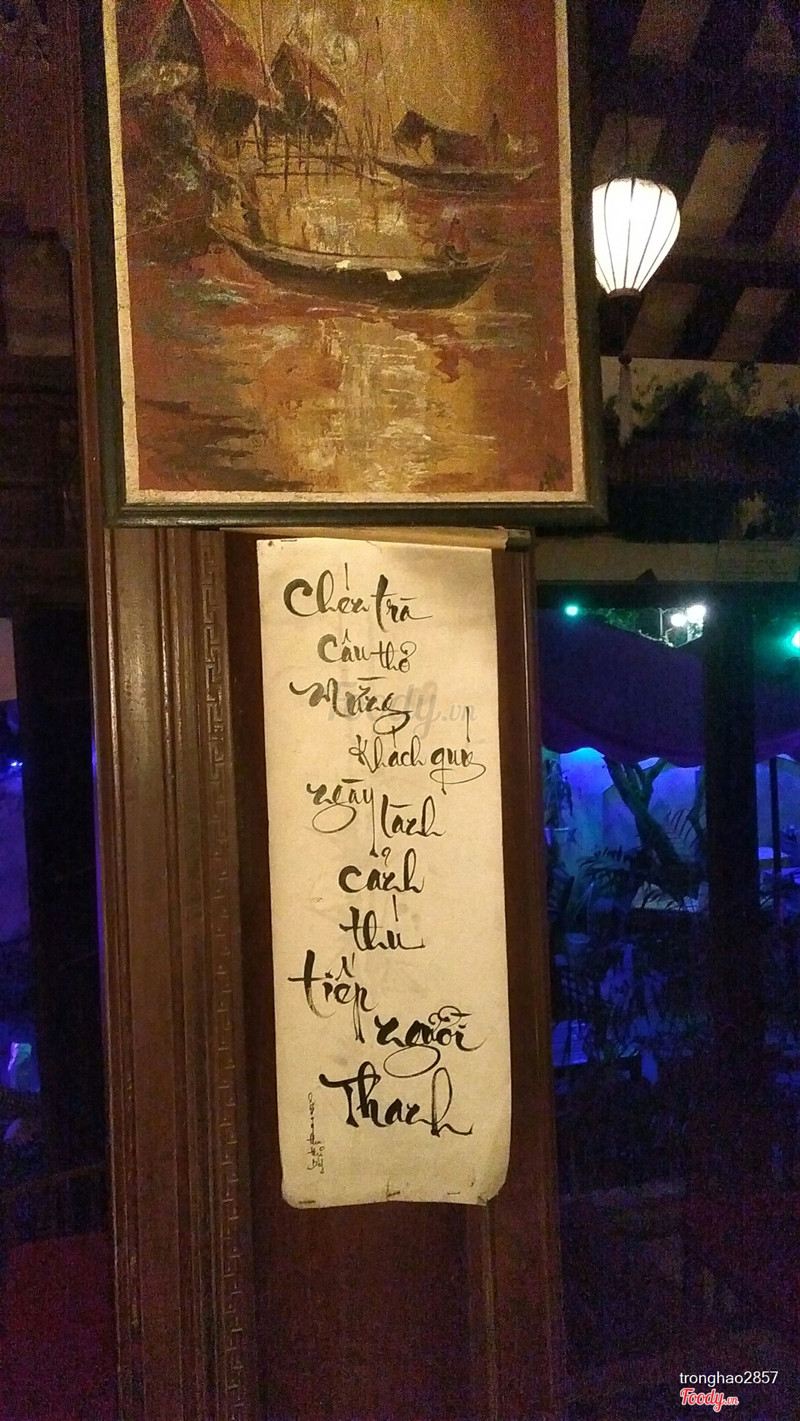 Chén trà
câu thơ
Mừng
Foody.vn
khách quý
ngày lành
cảnh
thú
tiếp
người
Thanh
tronghao2857
Foody.vn